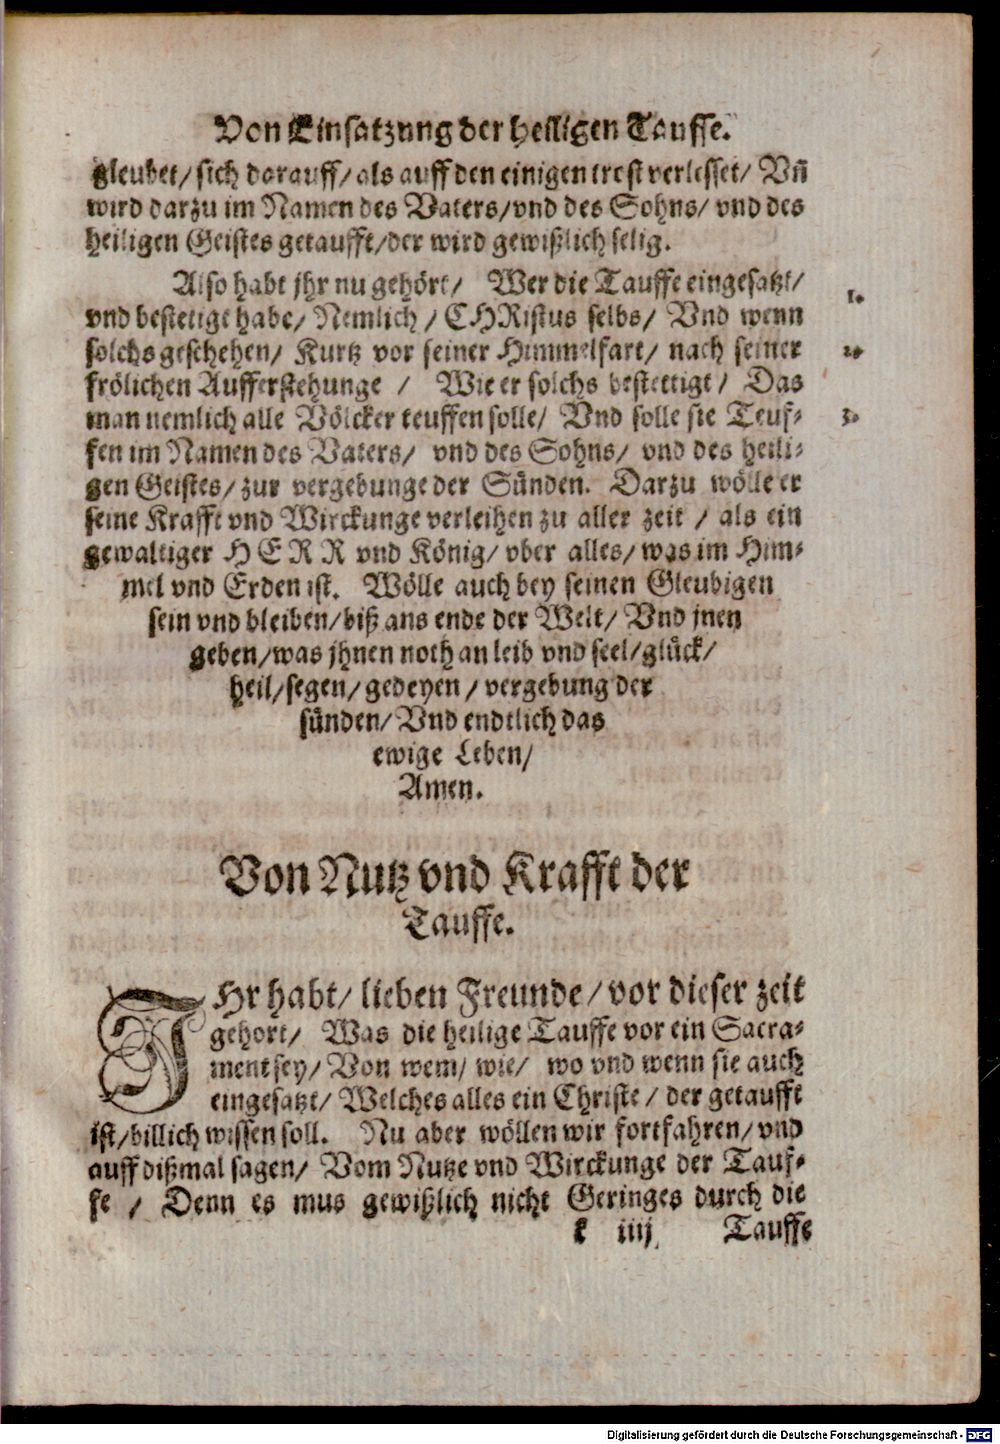 Von Einsatzung der heiligen Tauffe.
gleubet/ sich darauff/ als auff den einigen trost verlesset/ Vñ
wird darzu im Namen des Vaters/ vnd des Sohns/ vnd des
heiligen Geistes getaufft/ der wird gewißlich selig.
Also habt jhr nu gehört/ Wer die Tauffe eingesatzt/
vnd bestetigt habe/ Nemlich/ CHRistus selbs/ Vnd wenn 1.
solchs geschehen/ Kurtz vor seiner Himmelfart/ nach seiner 2.
frölichen Aufferstehunge / Wie er solchs bestettigt/ Das
man nemlich alle Völcker teuffen solle/ Vnd solle sie Teuf- 3.
fen im Namen des Vaters/ vnd des Sohns/ vnd des heili-
gen Geistes/ zur vergebunge der Sünden. Darzu wölle er
seine Krafft vnd Wirckunge verleihen zu aller zeit / als ein
gewaltiger HERR vnd König/ vber alles/ was im Him-
mel vnd Erden ist. Wölle auch bey seinen Gleubigen
sein vnd bleiben/ biß ans ende der Welt/ Vnd jnen
geben/ was jhnen noth an leib vnd seel/ glück/
heil/ segen/ gedeyen / vergebung der
sünden/ Vnd endtlich das
ewige Leben/
Amen.
Von Nutz vnd Krafft der
Tauffe.
IHr habt/ lieben Freunde/ vor dieser zeit
gehort/ Was die heilige Tauffe vor ein Sacra-
ment sey/ Von wem/ wie/ wo vnd wenn sie auch
eingesatzt/ Welches alles ein Christe / der getaufft
ist/ billich wissen soll. Nu aber wöllen wir fortfahren/ vnd
auff dißmal sagen/ Vom Nutze vnd Wirckunge der Tauf-
fe / Denn es mus gewißlich nicht Geringes durch die
k iiij Tauffe
Digitalisierung gefördert durch die Deutsche Forschungsgemeinschaft - DFG